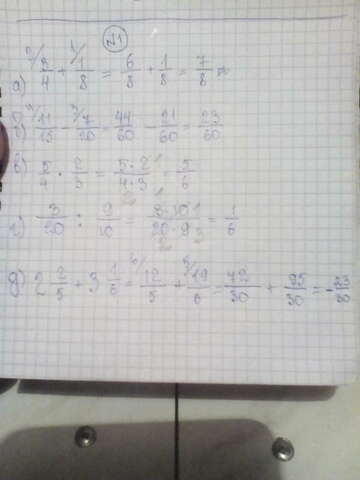 N1
а) 2/ 3/4 + 1/ 1/8 = 6/8 + 1/8 = 7/8
б) 4/ 11/15 - 3/ 7/20 = 44/60 - 21/60 = 23/60
в) 5/4 · 2/3 = 5·2 1/4·3 2 = 5/6
г) 3/20 : 9/10 = 3·10 1/20·9 2 3 = 1/6
д) 2 2/5 + 3 1/6 = 6/ 12/5 + 5/ 19/6 = 72/30 + 95/30 = - 23/30